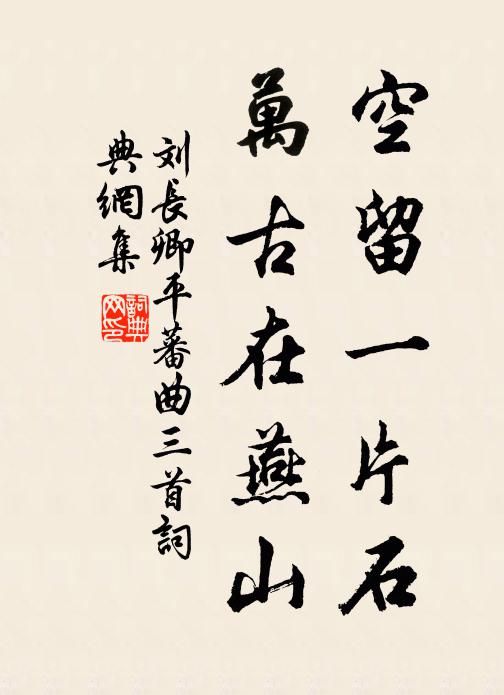 空留一片石
萬古在燕山
刘長卿平蕃曲三首詞
典網集
詞典
网印